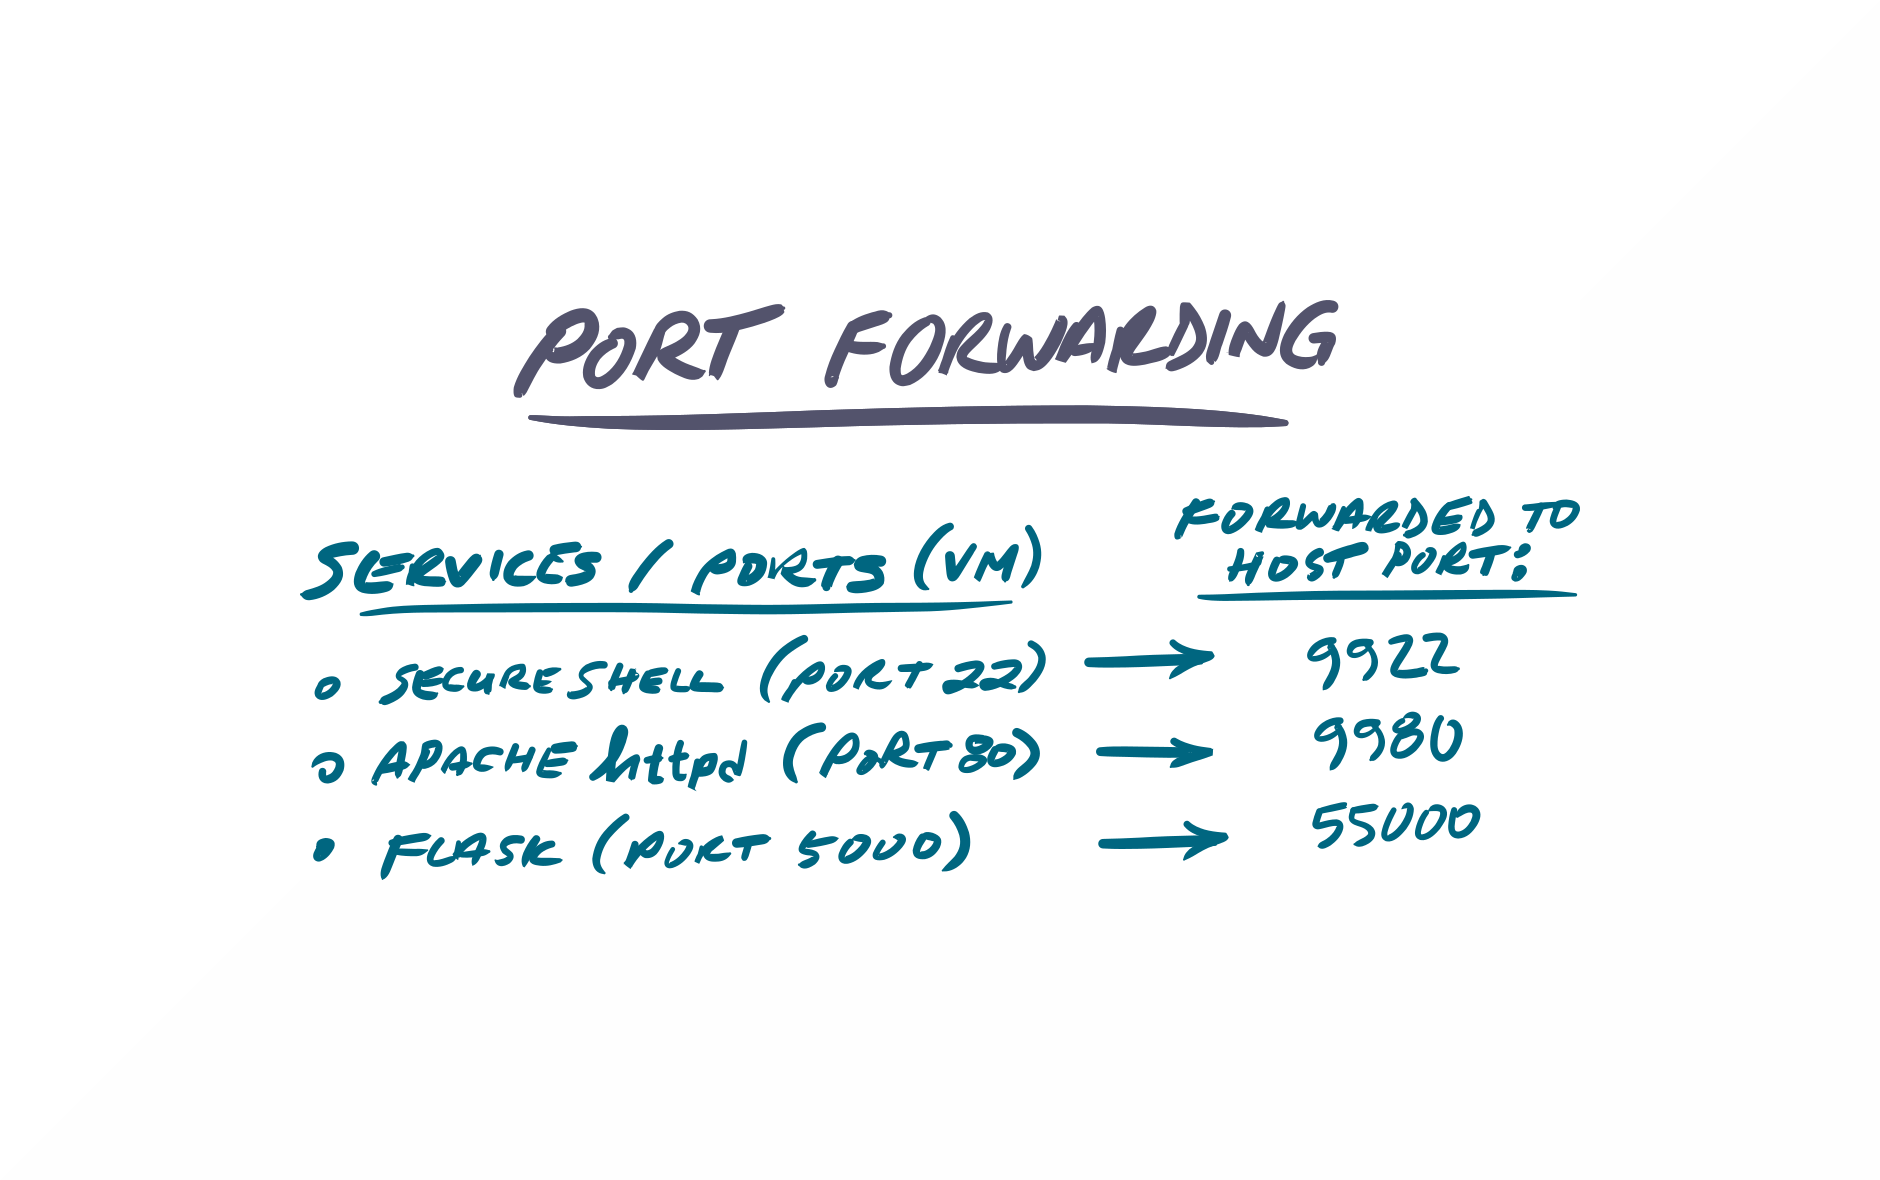 PORT FORWARDING
SERVICES / PORTS (VM)
FORWARDED TO
HOST PORT:
SECURE SHELL (PORT 22) → 9922
APACHE httpd (PORT 80) → 9980
FLASK (PORT 5000) → 55000